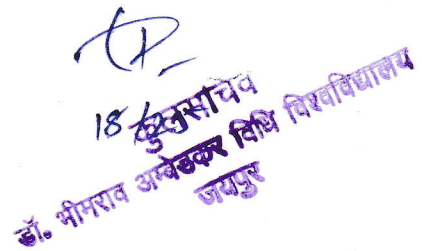 18
कुलसचिव
डॉ. भीमराव अम्बेडकर विधि विश्वविद्यालय
जयपुर